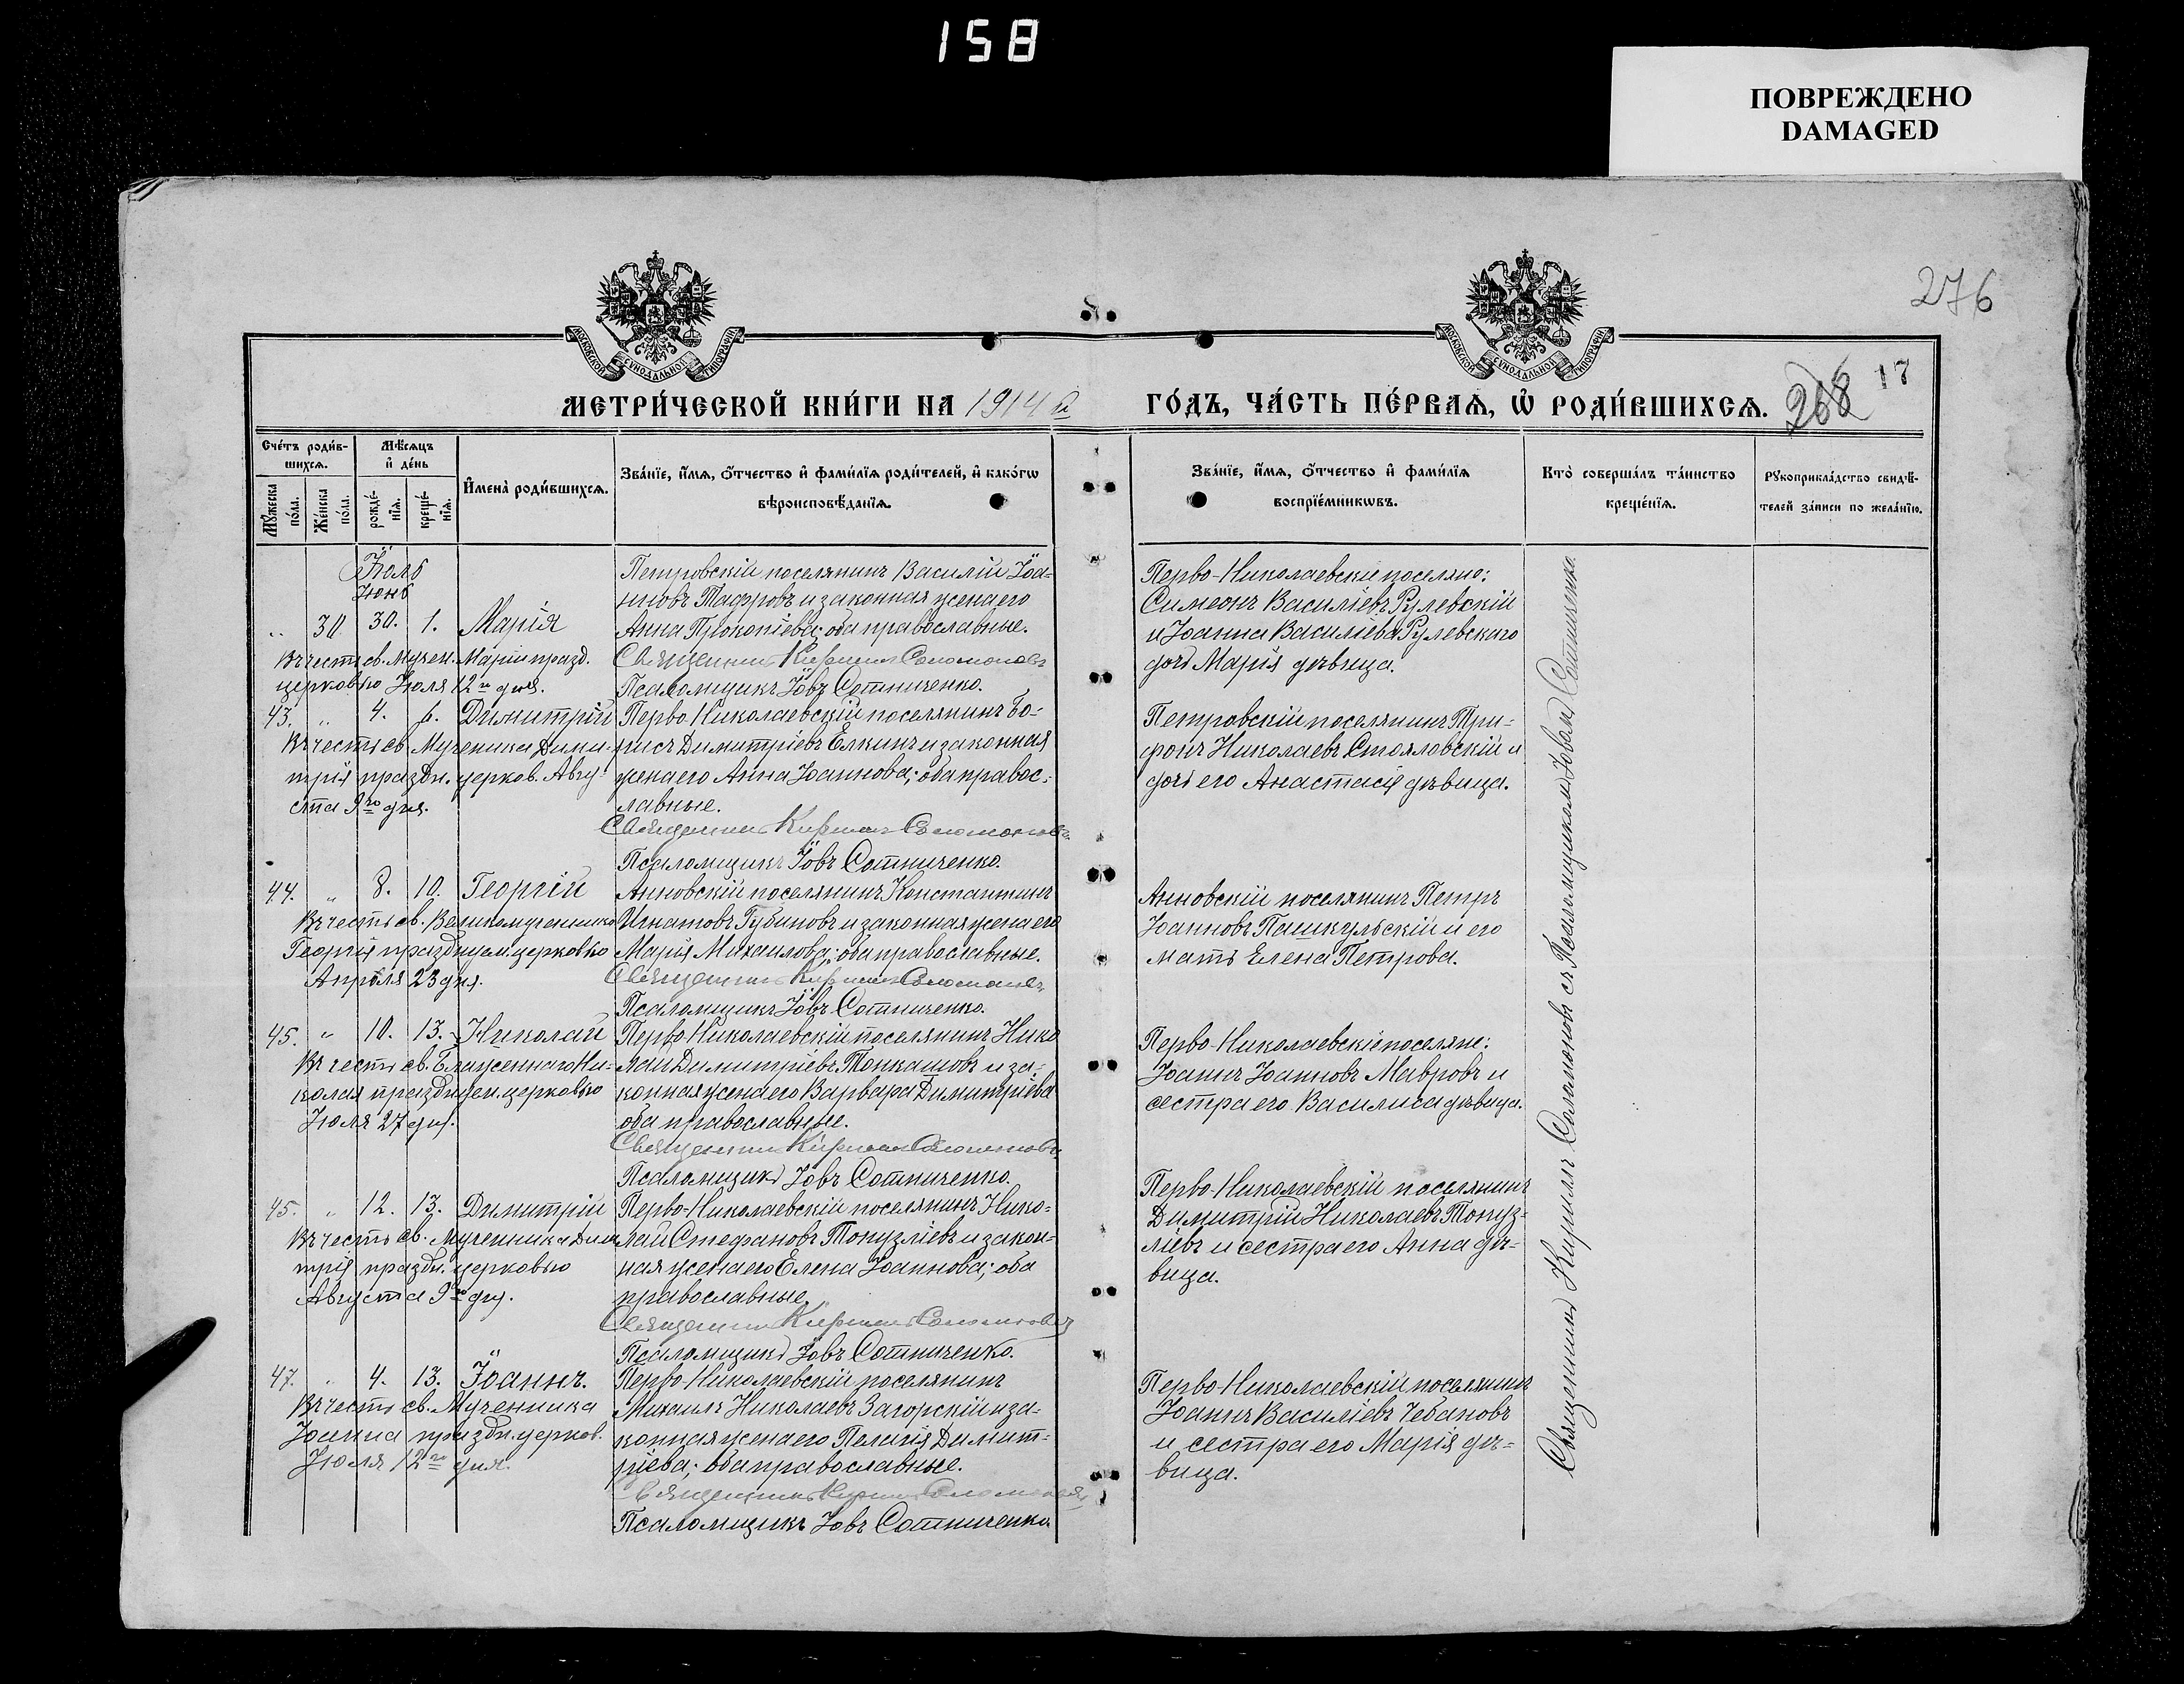 158
ПОВРЕЖДЕНО
DAMAGED
276
МОСКОВСКОЙ СѴНОДАЛЬНОЙ ТИПОГРАФІИ
МОСКОВСКОЙ СѴНОДАЛЬНОЙ ТИПОГРАФІИ
МЕТРИ́ЧЕСКОЙ КНИ́ГИ НА 1914 й
ГО́ДЪ, ЧА́СТЬ ПЕ́РВАѦ, Ѽ РОДИ́ВШИХСѦ.
268
17
Сче́тъ роди́в-
шихсѧ.
Мѣ́сяцъ
и҆ де́нь
Мꙋ́жеска
по́ла.
Же́нска
по́ла.
рожде́-
нїѧ.
креще́-
нїѧ.
И҆мена̀ роди́вшихсѧ.
Зва́нїе, и҆́мѧ, ѻ҆́тчество и҆ фами́лїѧ роди́телей, и҆ како́гѡ
вѣроисповѣ́данїѧ.
Зва́нїе, и҆́мѧ, ѻ҆́тчество и҆ фами́лїѧ
воспрїе́мникѡвъ.
Кто̀ соверша́лъ та́инство
креще́нїѧ.
Рꙋкоприкла́дство свидѣ́-
телей за́писи по жела́нїю.
Іюль
Іюнь
" 30 30. 1. Марія
Въ честь св. Мучен. Маріи празд.
церковью Іюля 12го дня.
Петровскій поселянинъ Василій Іоа-
нновъ Тафровъ и законная жена его
Анна Прокопіева; оба православные.
Священникъ Кириллъ Соломоновъ
Псаломщикъ Іовъ Сотниченко.
Перво-Николаевскіе поселяне:
Симеонъ Василіевъ Рулевскій
и Іоанна Василіева Рулевскаго
дочь Марія дѣвица.
43. " 4. 6. Димитрій
Въ честь св. Мученика Дими-
трія праздн. церков. Авгу-
ста 9го дня.
Перво-Николаевскій поселянинъ Бо-
рисъ Димитріевъ Елкинъ и законная
жена его Анна Іоаннова; оба правос-
лавные.
Священникъ Кириллъ Соломоновъ
Псаломщикъ Іовъ Сотниченко.
Петровскій поселянинъ Три-
фонъ Николаевъ Стояловскій и
дочь его Анастасія дѣвица.
44. " 8. 10. Георгій
Въ честь св. Великомученика
Георгія празднуем. церковью
Апрѣля 23 дня.
Анновскій поселянинъ Константинъ
Игнатовъ Губановъ и законная жена его
Марія Михаилова; оба православные.
Священникъ Кириллъ Соломоновъ
Псаломщикъ Іовъ Сотниченко.
Анновскій поселянинъ Петръ
Іоанновъ Пашкульскій и его
мать Елена Петрова.
45. " 10. 13. Николай
Въ честь св. Блаженнаго Ни-
колая празднуем. церковью
Іюля 27 дня.
Перво-Николаевскій поселянинъ Нико
лай Димитріевъ Топкашовъ и за-
конная жена его Варвара Димитріева
оба православные.
Священникъ Кириллъ Соломоновъ
Псаломщикъ Іовъ Сотниченко.
Перво-Николаевскіе поселяне:
Іоаннъ Іоанновъ Мавровъ и
сестра его Василиса дѣвица.
45. " 12. 13. Димитрій
Въ честь св. Мученика Дими
трія праздн. церковью
Августа 9го дня.
Перво-Николаевскій поселянинъ Нико-
лай Стефановъ Топузліевъ и закон-
ная жена его Елена Іоаннова; оба
православные.
Священникъ Кириллъ Соломоновъ
Псаломщикъ Іовъ Сотниченко.
Перво-Николаевскій поселянинъ
Димитрій Николаевъ Топуз-
ліевъ и сестра его Анна дѣ-
вица.
47. " 4. 13. Іоаннъ.
Въ честь св. Мученика
Іоанна праздн. церков.
Іюля 12го дня.
Перво-Николаевскій поселянинъ
Михаилъ Николаевъ Загорскій и за-
конная жена его Пелагія Димит-
ріева; оба православные.
Священникъ Кириллъ Соломоновъ
Псаломщикъ Іовъ Сотниченко
Перво-Николаевскій поселянинъ
Іоаннъ Василіевъ Чебановъ
и сестра его Марія дѣ-
вица.
Священникъ Кириллъ Соломоновъ съ Псаломщикомъ Іовомъ Сотниченко.